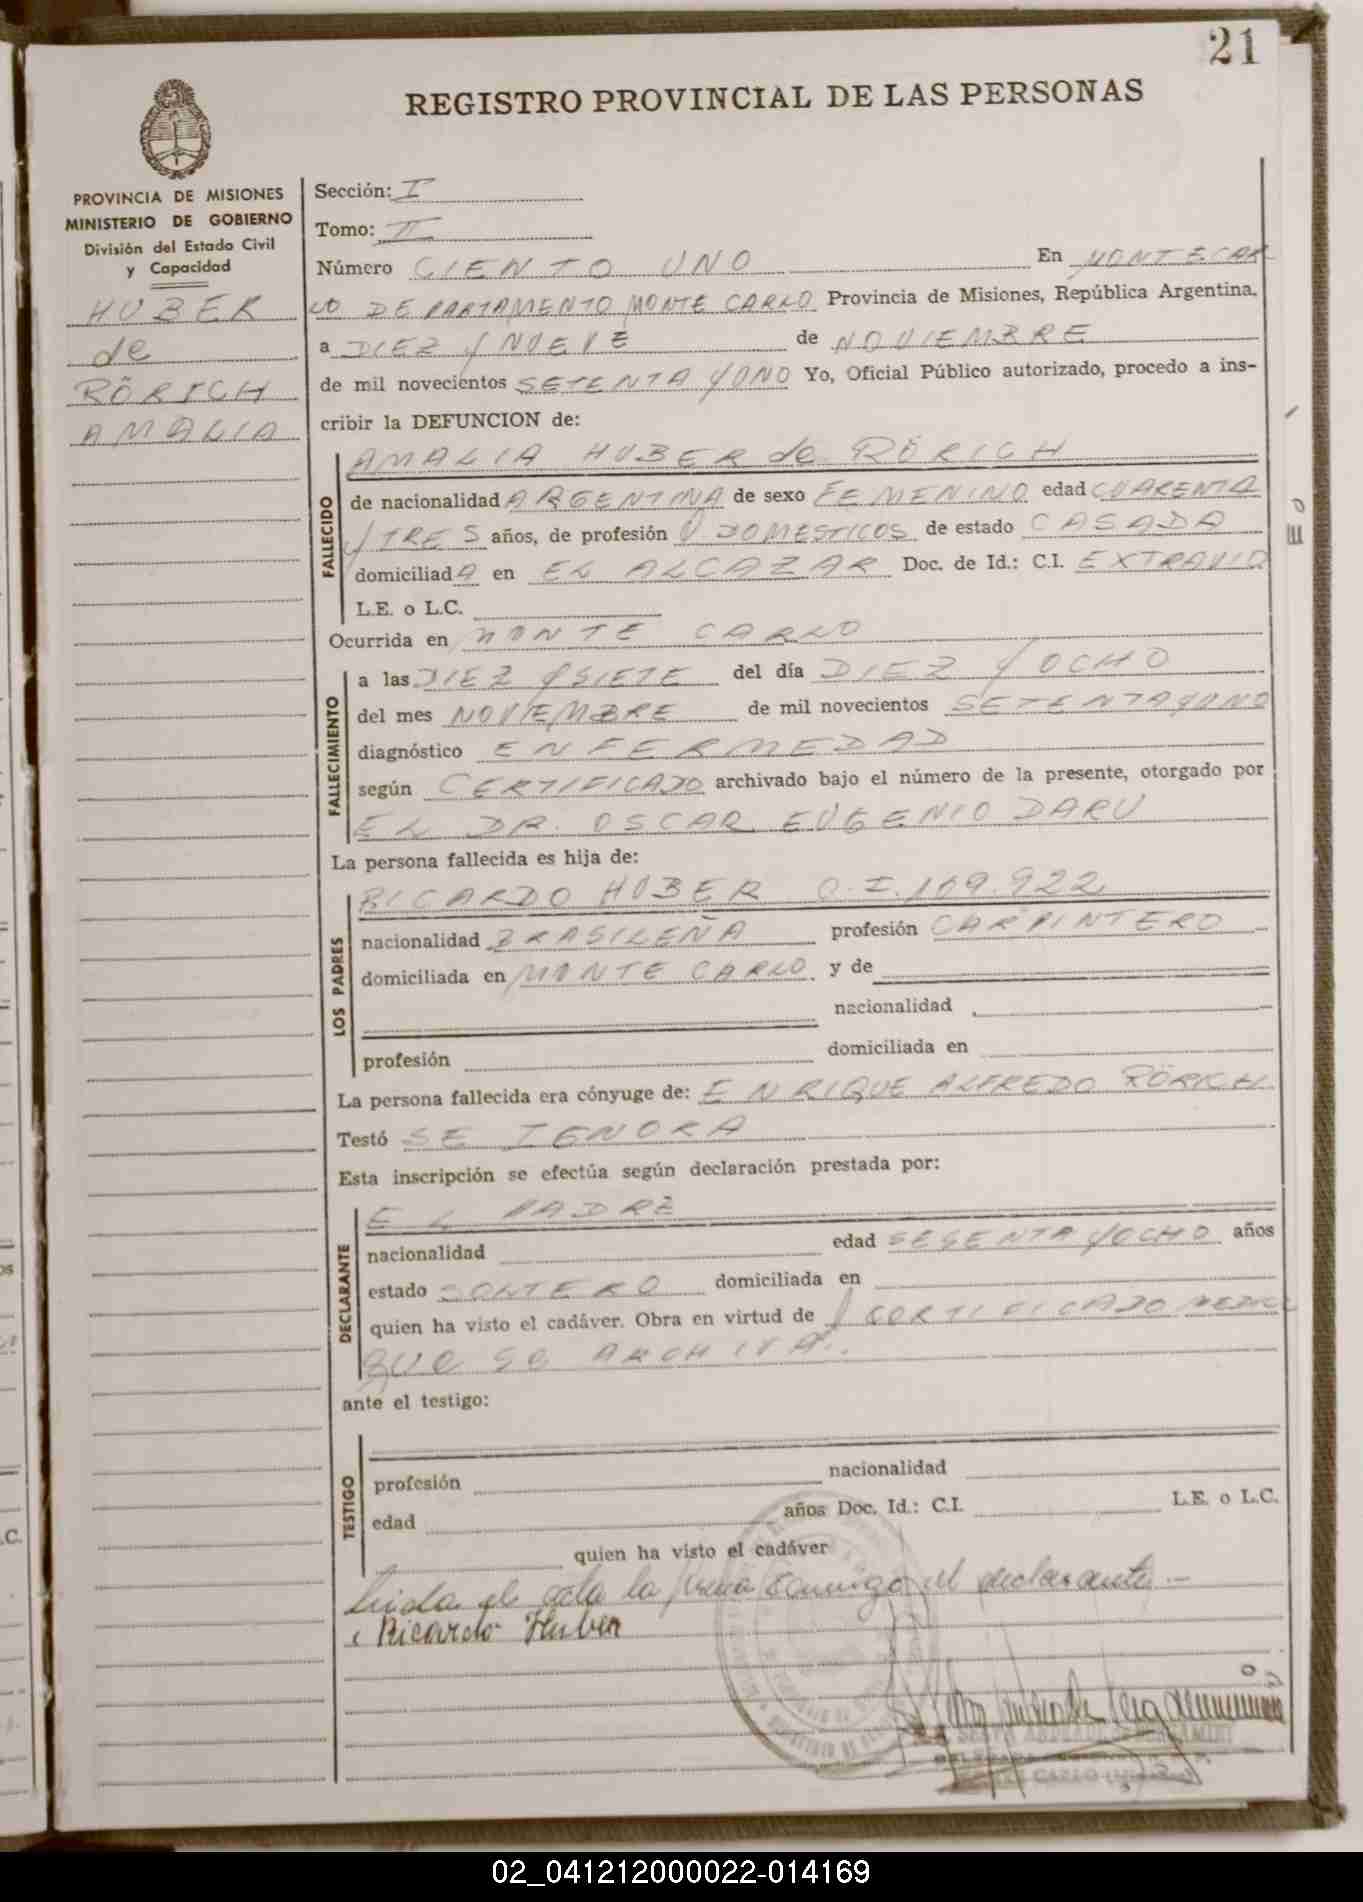 21
REGISTRO PROVINCIAL DE LAS PERSONAS
PROVINCIA DE MISIONES
MINISTERIO DE GOBIERNO
División del Estado Civil
y Capacidad
HUBER
de
RÖRICH
AMALIA
Sección: I
Tomo: II
Número CIENTO UNO En MONTECAR
LO DEPARTAMENTO MONTE CARLO Provincia de Misiones, República Argentina,
a DIEZ y NUEVE de NOVIEMBRE
de mil novecientos SETENTA y UNO Yo, Oficial Público autorizado, procedo a ins-
cribir la DEFUNCION de:
AMALIA HUBER de RÖRICH
FALLECIDO
de nacionalidad ARGENTINA de sexo FEMENINO edad CUARENTA
y TRES años, de profesión Q DOMESTICOS de estado CASADA
domiciliada en EL ALCAZAR Doc. de Id.: C.I. EXTRAVIO
L.E. o L.C.
Ocurrida en MONTE CARLO
FALLECIMIENTO
a las DIEZ y SIETE del día DIEZ y OCHO
del mes NOVIEMBRE de mil novecientos SETENTA y UNO
diagnóstico ENFERMEDAD
según CERTIFICADO archivado bajo el número de la presente, otorgado por
EL DR. OSCAR EUGENIO DARU
La persona fallecida es hija de:
LOS PADRES
RICARDO HUBER C.I. 109.922
nacionalidad BRASILEÑA profesión CARPINTERO
domiciliada en MONTE CARLO. y de
nacionalidad
profesión domiciliada en
La persona fallecida era cónyuge de: ENRIQUE ALFREDO RÖRICH
Testó SE IGNORA
Esta inscripción se efectúa según declaración prestada por:
DECLARANTE
EL PADRE
nacionalidad edad SESENTA y OCHO años
estado SOLTERO domiciliada en
quien ha visto el cadáver. Obra en virtud de CERTIFICADO MEDICO
QUE SE ARCHIVA.
ante el testigo:
TESTIGO
profesión nacionalidad
edad años Doc. Id.: C.I. L.E. o L.C.
quien ha visto el cadáver
Leida el acta la firma conmigo el declarante.-
Ricardo Huber
02_041212000022-014169